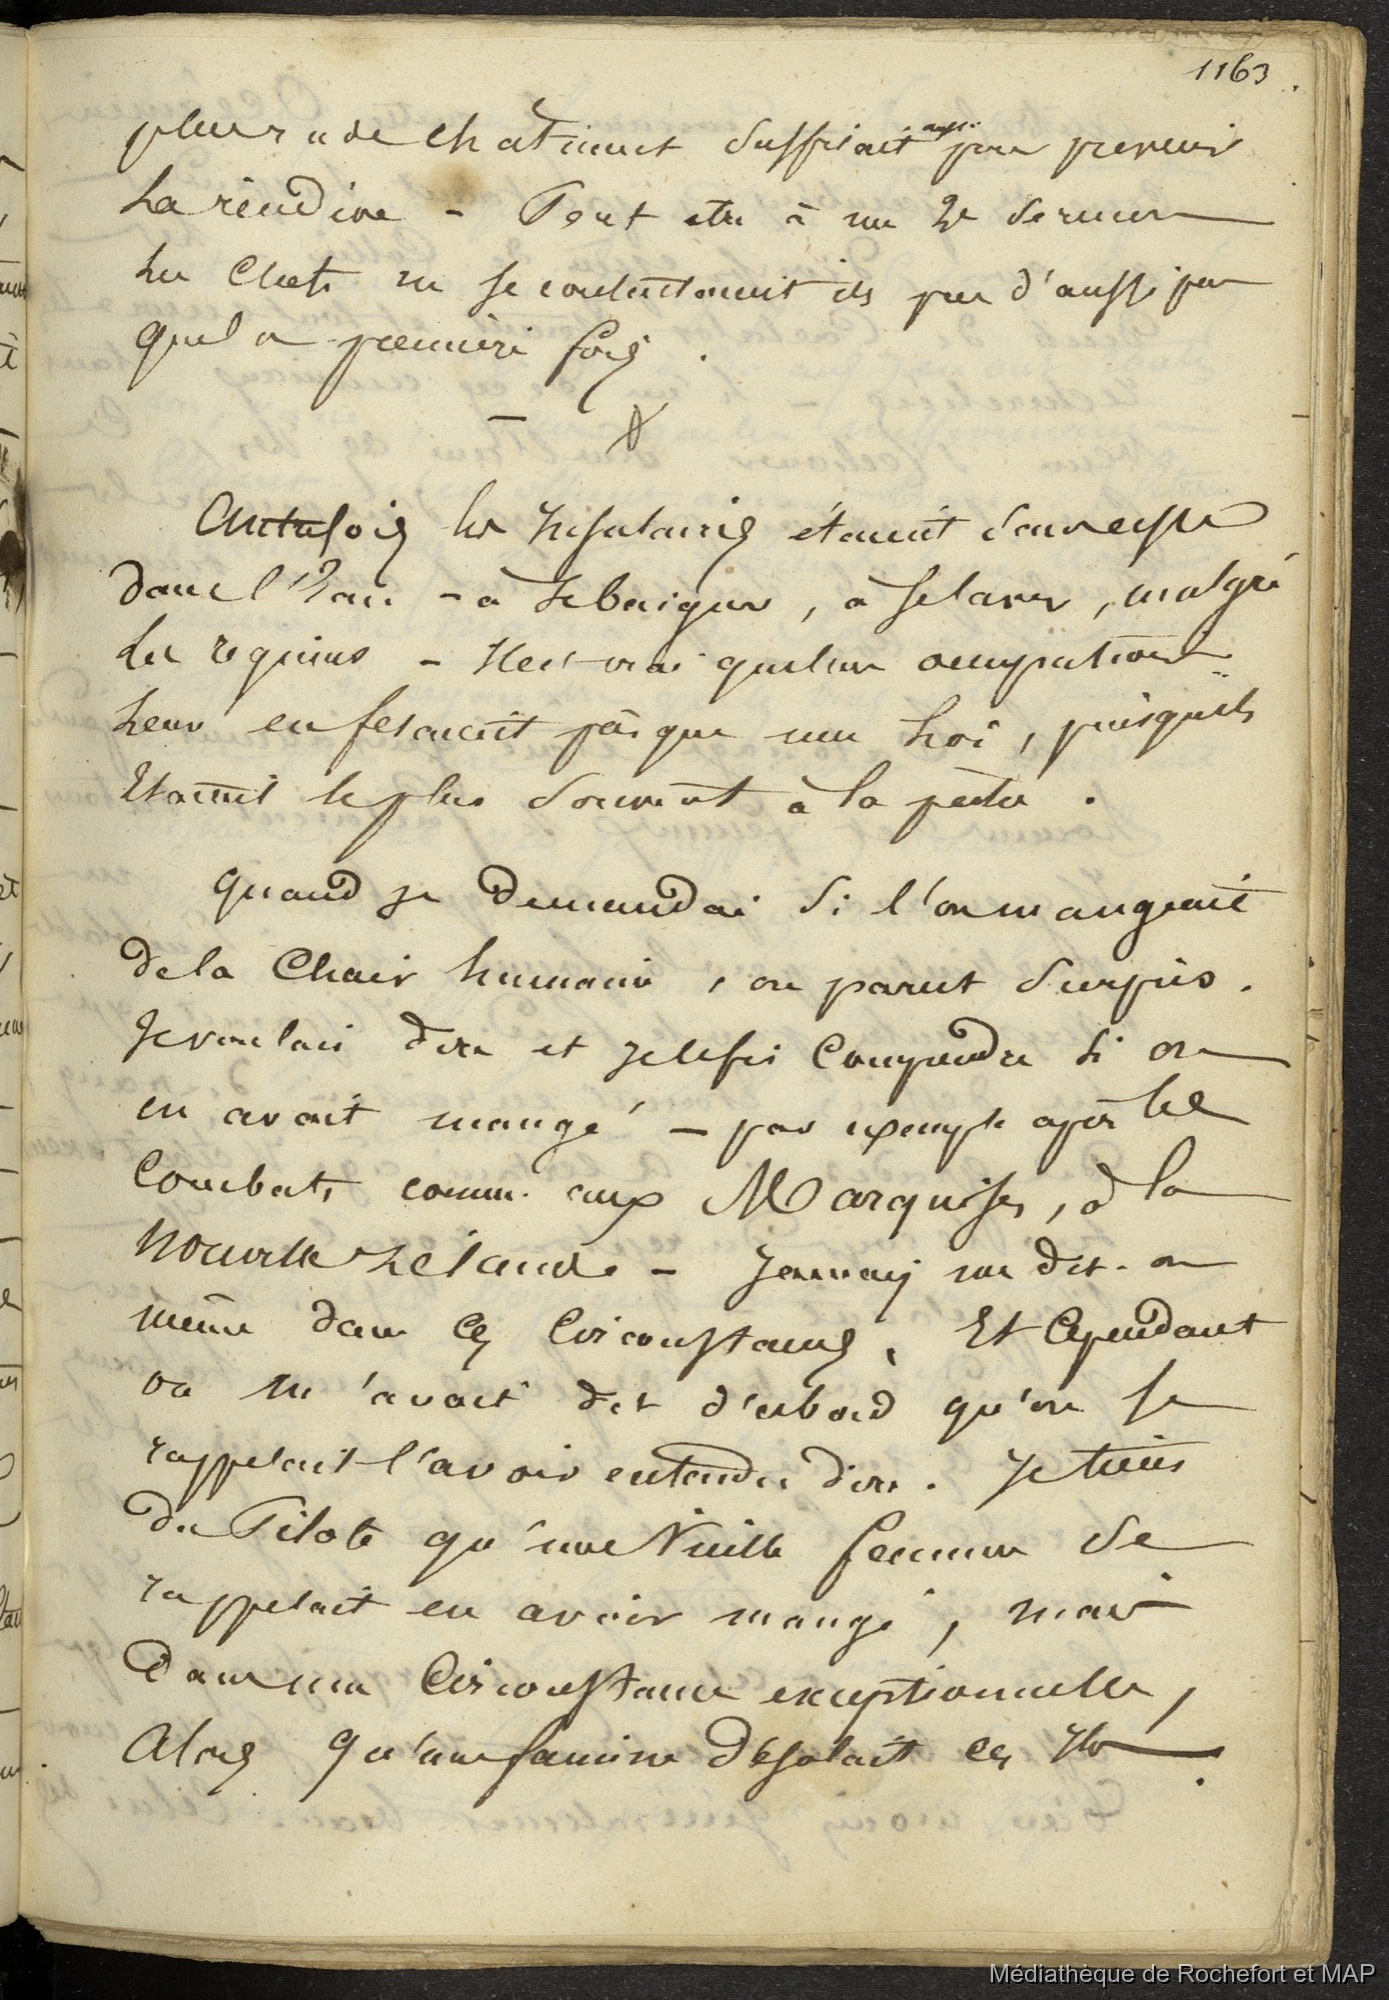 1163.
peu de châtiment suffisait aussi pour prevenir
La récidive - Peut etre à une 2e
Les Chefs ne se contentaient ils pas d'aussi peu
que la première fois.
- X
Autrefois les Insulaires étaient sans cesse
dans l'Eau - à se baigner, à se laver, malgré
Les requins - Il est vrai que leur occupations
Leur en fesaient presque une Loi, puisqu'ils
Etaient le plus souvent à la pêche.
Quand je demandai si l'on mangeait
de la Chair humaine, on parut surpris.
Je voulais dire et je le fis Comprendre si on
en avait mangé - par exemple après les
Combats, comme aux Marquises, à la
Nouvelle Zélande - Jamais me dit-on
même dans ces Circonstances. Et Cependant
on m'avait dit d'abord qu'on se
rappelait l'avoir entendu dire. Je tiens
du Pilote qu'une Vieille femme se
rappelait en avoir mangé, mais
dans une Circonstance exceptionnelle,
alors qu'une famine désolait ces Iles.
Médiathèque de Rochefort et MAP